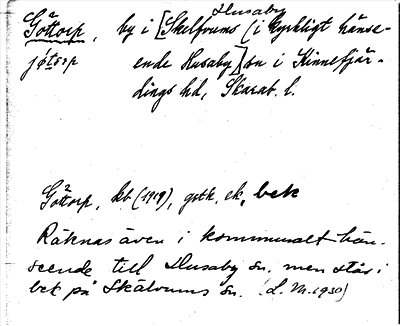 Husaby
Göttorp, by i [Skelfvums (i kyrkligt hänse-
jǿtorp ende Husaby] sn i Kinnefjär-
dings hd, Skarab. l.
Göttorp, kb (1919), geth. ek, bek
Räknas även i kommunalt hän-
seende till Husaby sn. men står i
bek på Skälvums sn. (L. M. 1930)